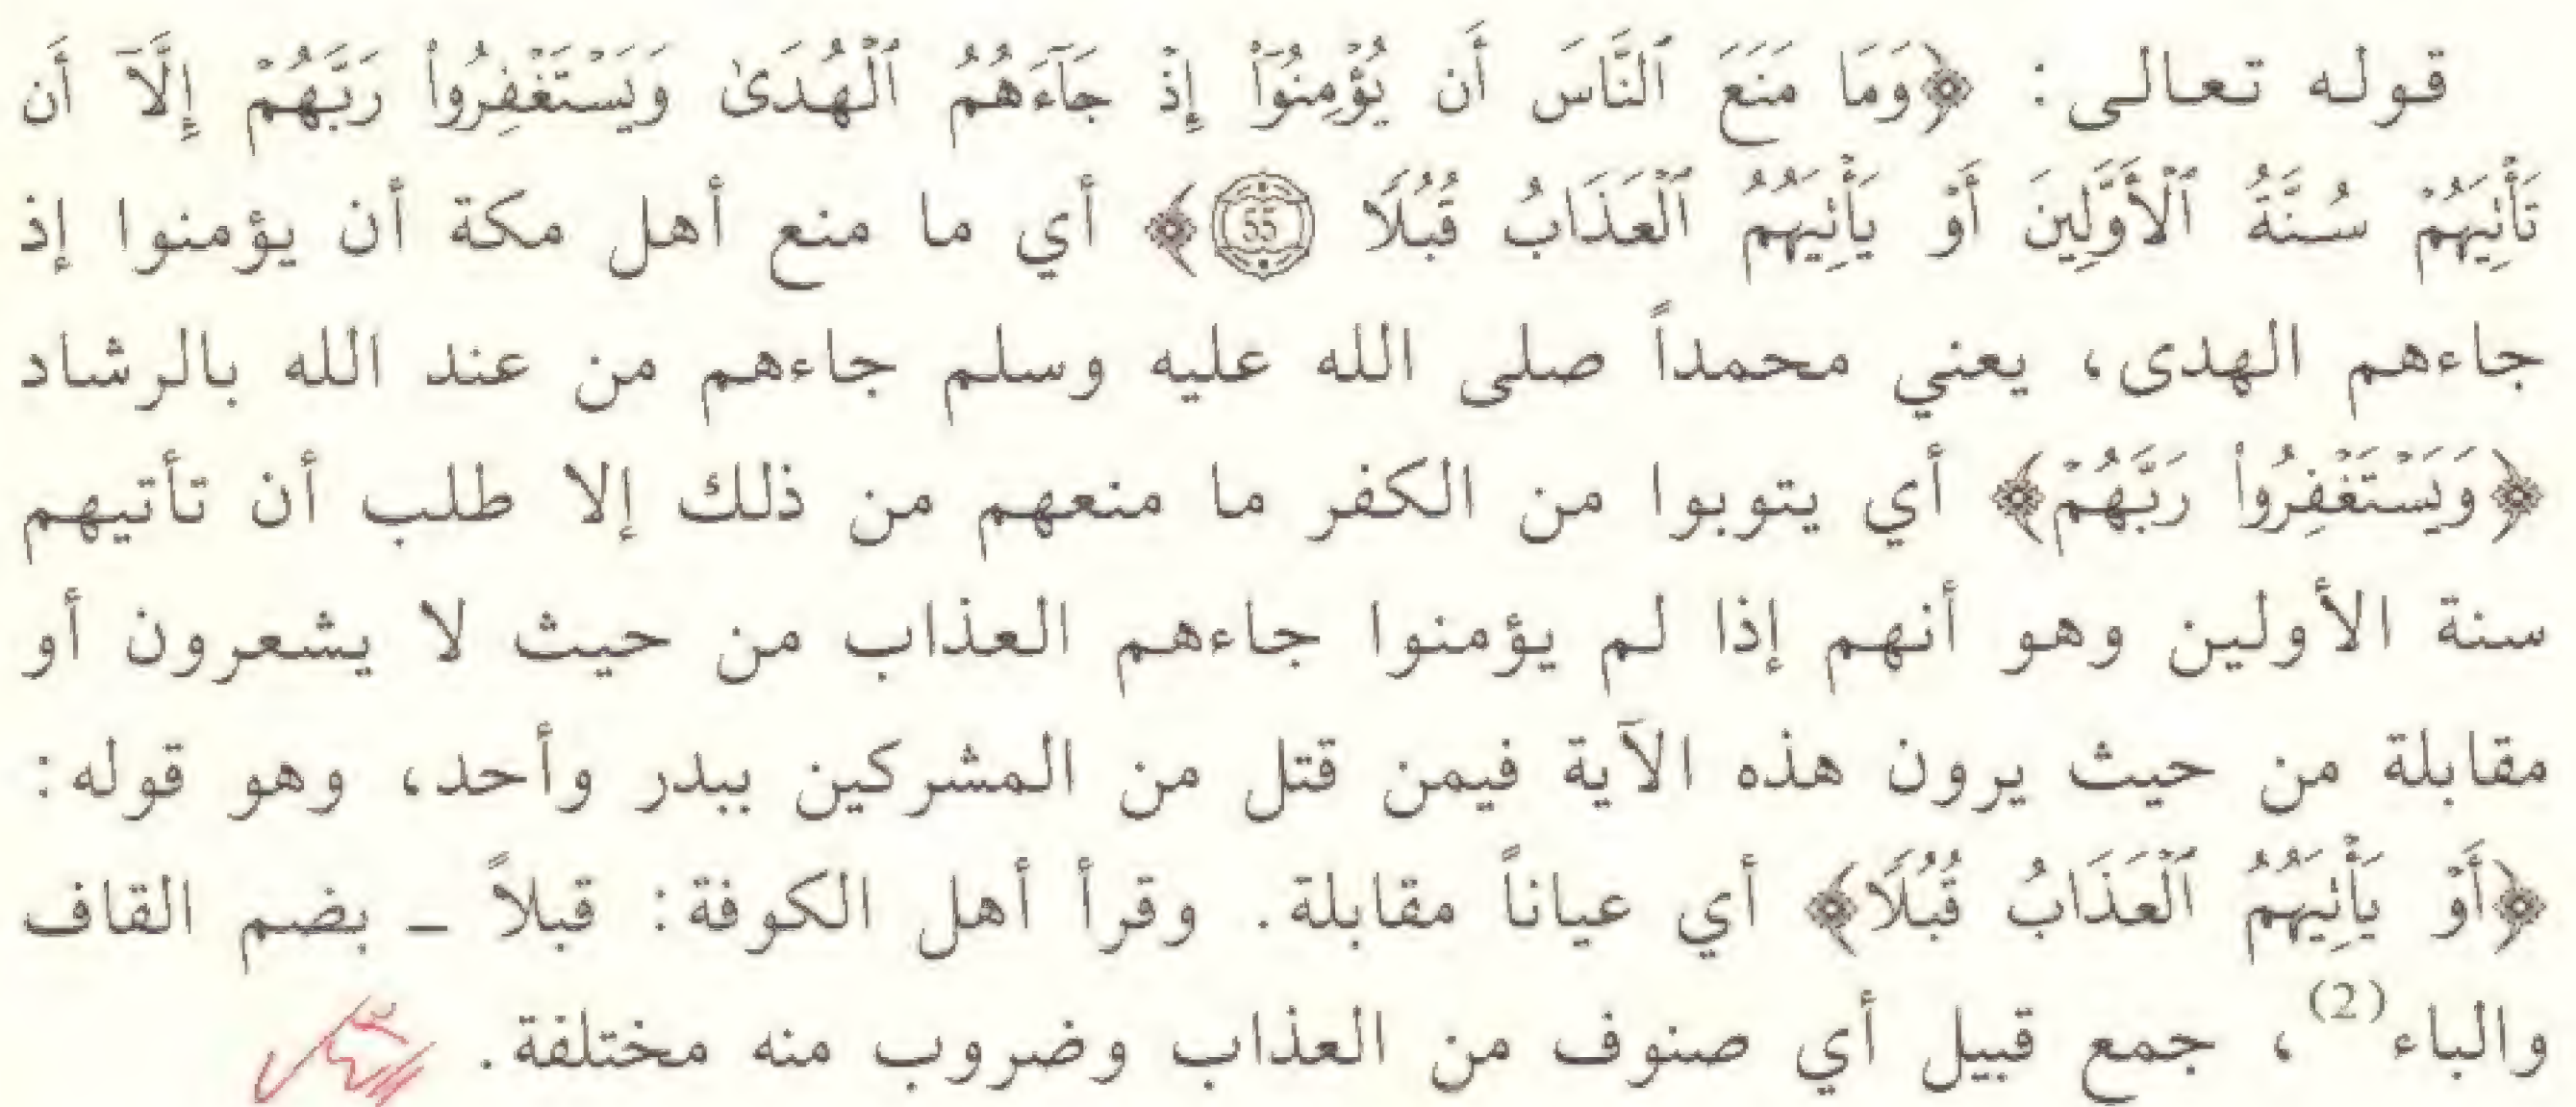 قوله تعالى: ﴿وَمَا مَنَعَ ٱلنَّاسَ أَن يُؤْمِنُوٓا۟ إِذْ جَآءَهُمُ ٱلْهُدَىٰ وَيَسْتَغْفِرُوا۟ رَبَّهُمْ إِلَّآ أَن
تَأْتِيَهُمْ سُنَّةُ ٱلْأَوَّلِينَ أَوْ يَأْتِيَهُمُ ٱلْعَذَابُ قُبُلًا 55﴾ أي ما منع أهل مكة أن يؤمنوا إذ
جاءهم الهدى، يعني محمداً صلى الله عليه وسلم جاءهم من عند الله بالرشاد
﴿وَيَسْتَغْفِرُوا۟ رَبَّهُمْ﴾ أي يتوبوا من الكفر ما منعهم من ذلك إلا طلب أن تأتيهم
سنة الأولين وهو أنهم إذا لم يؤمنوا جاءهم العذاب من حيث لا يشعرون أو
مقابلة من حيث يرون هذه الآية فيمن قتل من المشركين ببدر وأحد، وهو قوله:
﴿أَوْ يَأْتِيَهُمُ ٱلْعَذَابُ قُبُلًا﴾ أي عياناً مقابلة. وقرأ أهل الكوفة: قبلاً ـ بضم القاف
والباء(2)، جمع قبيل أي صنوف من العذاب وضروب منه مختلفة.